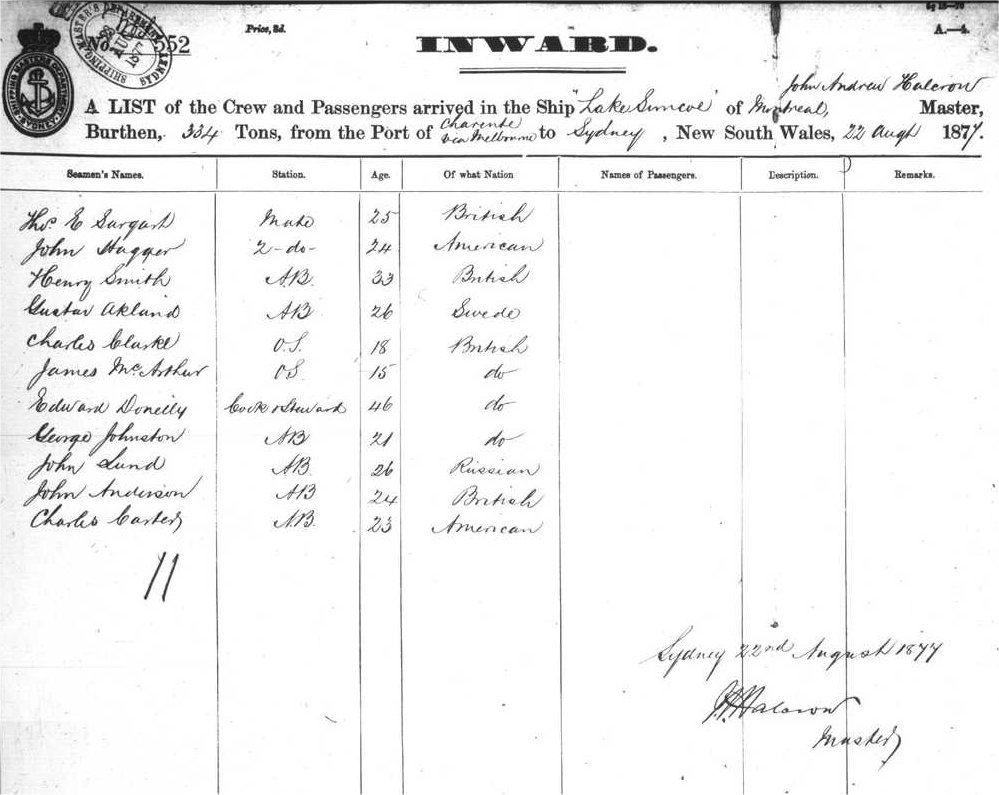 No. 552
Price, 3d.
INWARD.
A.—4.
SHIPPING MASTER'S DEPARTMENT SYDNEY
AUG 1877
John Andrew Halcrow
A LIST of the Crew and Passengers arrived in the Ship "Lake Simcoe" of Montreal, Master,
Burthen, 334 Tons, from the Port of Charente via Melbourne to Sydney, New South Wales, 22 Augt 1877.
Seamen's Names. Station. Age. Of what Nation Names of Passengers. Description. Remarks.
Thos. E Sargart Mate 25 British
John Hagger 2-do- 24 American
Henry Smith AB. 33 British
Gustav Aklund AB 26 Swede
Charles Clarke O.S. 18 British
James McArthur OS 15 do
Edward Doneilly Cook & Steward 46 do
George Johnston AB 21 do
John Lund AB 26 Russian
John Anderson AB 24 British
Charles Carter AB. 23 American
11
Sydney 22nd August 1877
J A Halcrow
Master